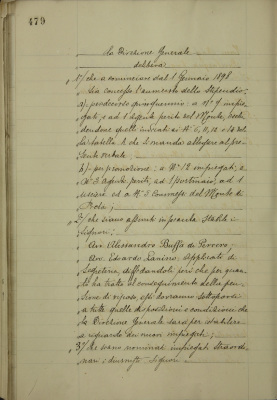 479
la Direzione Generale
delibera
1°/ che a cominciare dal 1 Gennaio 1898
sia concesso l'aumento dello stipendio:
a/- per decorso quinquennio: a N° 9 impie-
gati, e ad 1 Agente perito nel Monte, 
dendone quelli indicati ai N. 6, 11, 12 e 14 del-
la tabella A che si manda allegare al pre-
sente verbale.
b/- per promozione: a N° 12 impiegati; a
N° 2 Agenti periti; ad 1 portinaio; ad 1
usciere ed a N° 2 Commessi del Monte di
Pietà;
2°/ che siano assunti in pianta stabile i
Signori:
Avv. Alessandro Buffa di Perrero
Avv. Edoardo Zanino. Applicati di
Segreteria, diffidandoli però che per quan-
to ha tratto al conseguimento della pen-
sione di riposo, essi dovranno sottoporsi
a tutte quelle disposizioni e condizioni che
la Direzione Generale sarà per stabilire
a riguardo dei nuovi impiegati;
3°/ che siano nominati impiegati straordi-
nari: diurnisti i Signori